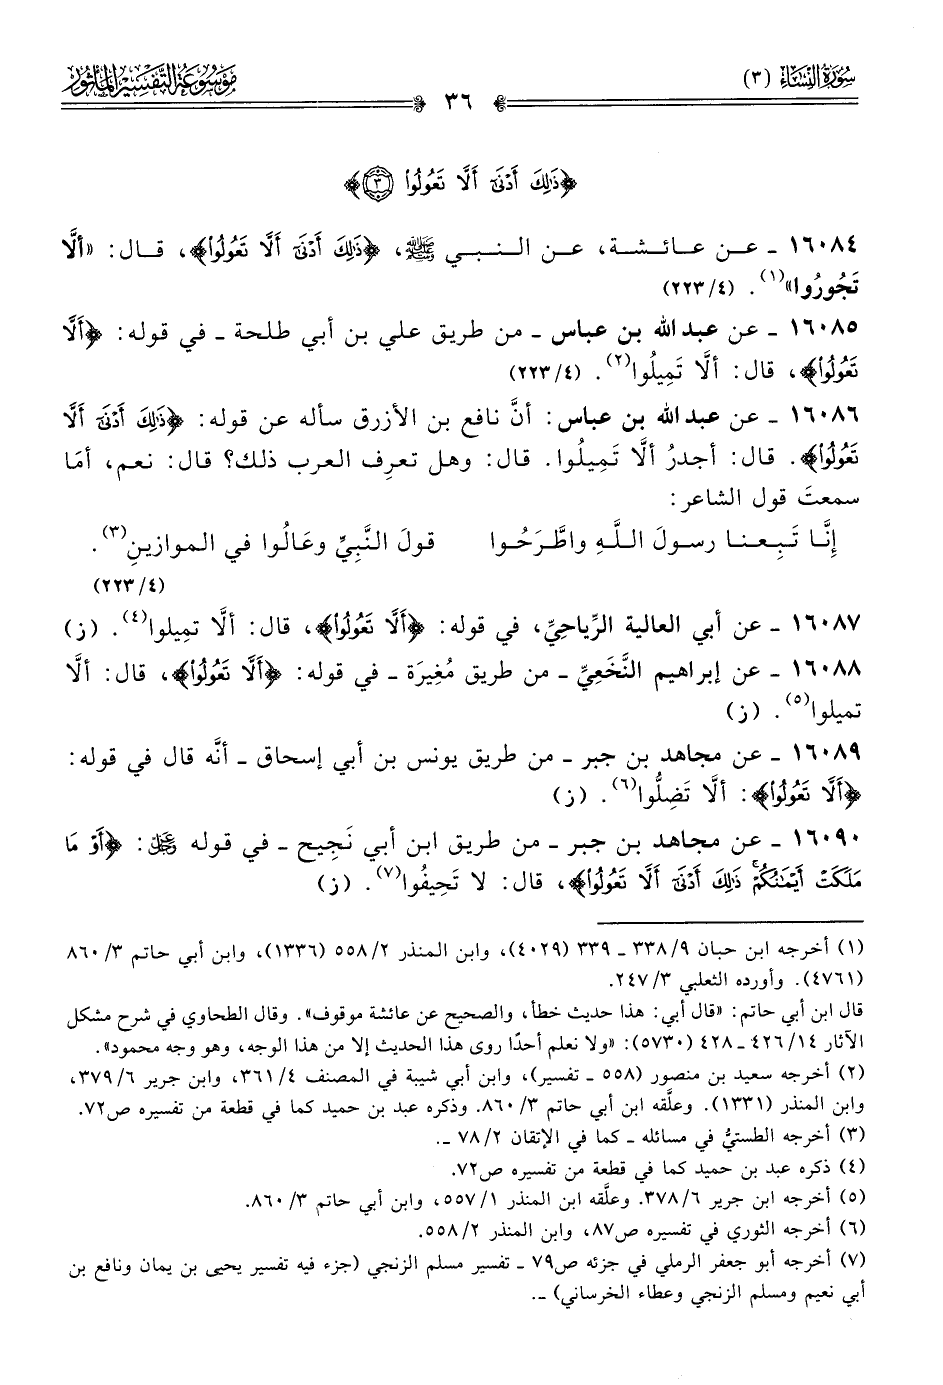 سُورَةُ النِّسَاءِ (٣)
٣٦
مَوْسُوعَةُ التَّفْسِيرِ المَأْثُورِ
﴿ذَٰلِكَ أَدْنَىٰٓ أَلَّا تَعُولُوا۟ ٣﴾
١٦٠٨٤ ـ عـن عـائـشـة، عـن الـنـبـي ﷺ، ﴿ذَٰلِكَ أَدْنَىٰٓ أَلَّا تَعُولُوا۟﴾، قـال: «ألَّا
تَجُورُوا»(١). (٤/ ٢٢٣)
١٦٠٨٥ ـ عن عبد الله بن عباس ـ من طريق علي بن أبي طلحة ـ في قوله: ﴿أَلَّا
تَعُولُوا۟﴾، قال: ألَّا تَمِيلُوا(٢). (٤/ ٢٢٣)
١٦٠٨٦ ـ عن عبد الله بن عباس: أنَّ نافع بن الأزرق سأله عن قوله: ﴿ذَٰلِكَ أَدْنَىٰٓ أَلَّا
تَعُولُوا۟﴾. قال: أجدرُ ألَّا تَمِيلُوا. قال: وهل تعرِف العرب ذلك؟ قال: نعم، أمَا
سمعتَ قول الشاعر:
إنَّـا تَـبِـعـنـا رسـولَ الـلَّـهِ واطَّـرَحُـوا قولَ النَّبِيِّ وعَالُوا في الموازينِ(٣).
(٤/ ٢٢٣)
١٦٠٨٧ ـ عن أبي العالية الرِّياحِيِّ، في قوله: ﴿أَلَّا تَعُولُوا۟﴾، قال: ألَّا تمِيلوا(٤). (ز)
١٦٠٨٨ ـ عن إبراهيم النَّخَعِيِّ ـ من طريق مُغِيرَة ـ في قوله: ﴿أَلَّا تَعُولُوا۟﴾، قال: ألَّا
تميلوا(٥). (ز)
١٦٠٨٩ ـ عن مجاهد بن جبر ـ من طريق يونس بن أبي إسحاق ـ أنَّه قال في قوله:
﴿أَلَّا تَعُولُوا۟﴾: ألَّا تَضِلُّوا(٦). (ز)
١٦٠٩٠ ـ عن مجاهد بن جبر ـ من طريق ابن أبي نَجِيح ـ في قوله عز وجل: ﴿أَوْ مَا
مَلَكَتْ أَيْمَٰنُكُمْ ۚ ذَٰلِكَ أَدْنَىٰٓ أَلَّا تَعُولُوا۟﴾، قال: لا تَحِيفُوا(٧). (ز)
(١) أخرجه ابن حبان ٩/ ٣٣٨ ـ ٣٣٩ (٤٠٢٩)، وابن المنذر ٢/ ٥٥٨ (١٣٣٦)، وابن أبي حاتم ٣/ ٨٦٠
(٤٧٦١). وأورده الثعلبي ٣/ ٢٤٧.
قال ابن أبي حاتم: «قال أبي: هذا حديث خطأ، والصحيح عن عائشة موقوف». وقال الطحاوي في شرح مشكل
الآثار ١٤/ ٤٢٦ ـ ٤٢٨ (٥٧٣٠): «ولا نعلم أحدًا روى هذا الحديث إلا من هذا الوجه، وهو وجه محمود».
(٢) أخرجه سعيد بن منصور (٥٥٨ ـ تفسير)، وابن أبي شيبة في المصنف ٤/ ٣٦١، وابن جرير ٦/ ٣٧٩،
وابن المنذر (١٣٣١). وعلَّقه ابن أبي حاتم ٣/ ٨٦٠. وذكره عبد بن حميد كما في قطعة من تفسيره ص٧٢.
(٣) أخرجه الطستيُّ في مسائله ـ كما في الإتقان ٢/ ٧٨ ـ.
(٤) ذكره عبد بن حميد كما في قطعة من تفسيره ص٧٢.
(٥) أخرجه ابن جرير ٦/ ٣٧٨. وعلَّقه ابن المنذر ١/ ٥٥٧، وابن أبي حاتم ٣/ ٨٦٠.
(٦) أخرجه الثوري في تفسيره ص٨٧، وابن المنذر ٢/ ٥٥٨.
(٧) أخرجه أبو جعفر الرملي في جزئه ص٧٩ ـ تفسير مسلم الزنجي (جزء فيه تفسير يحيى بن يمان ونافع بن
أبي نعيم ومسلم الزنجي وعطاء الخرساني) ـ.